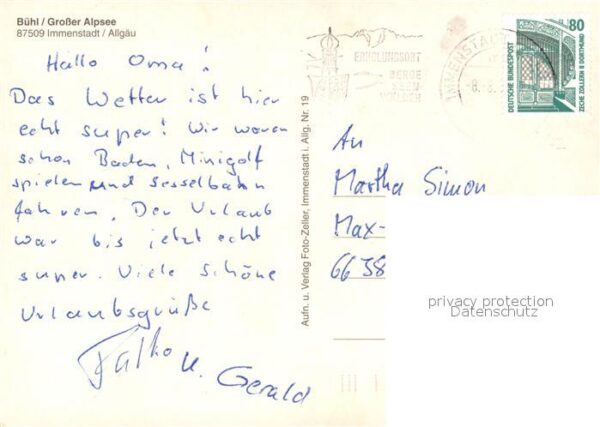 Bühl / Großer Alpsee
87509 Immenstadt / Allgäu
Hallo Oma!
Das Wetter ist hier
echt super! Wir waren
schon Baden, Minigolf
spielen und Sesselbahn
fahren. Der Urlaub
war bis jetzt echt
super. Viele schöne
Urlaubsgrüße
Falko u. Gerald
Aufn. u. Verlag Foto-Zeller, Immenstadt i. Allg. Nr. 19
ERHOLUNGSORT
BERGE
SEEN
WÄLDER
IMMENSTADT
80
DEUTSCHE BUNDESPOST
ZECHE ZOLLERN II DORTMUND
An
Martha Simon
Max-
6638
privacy protection
Datenschutz